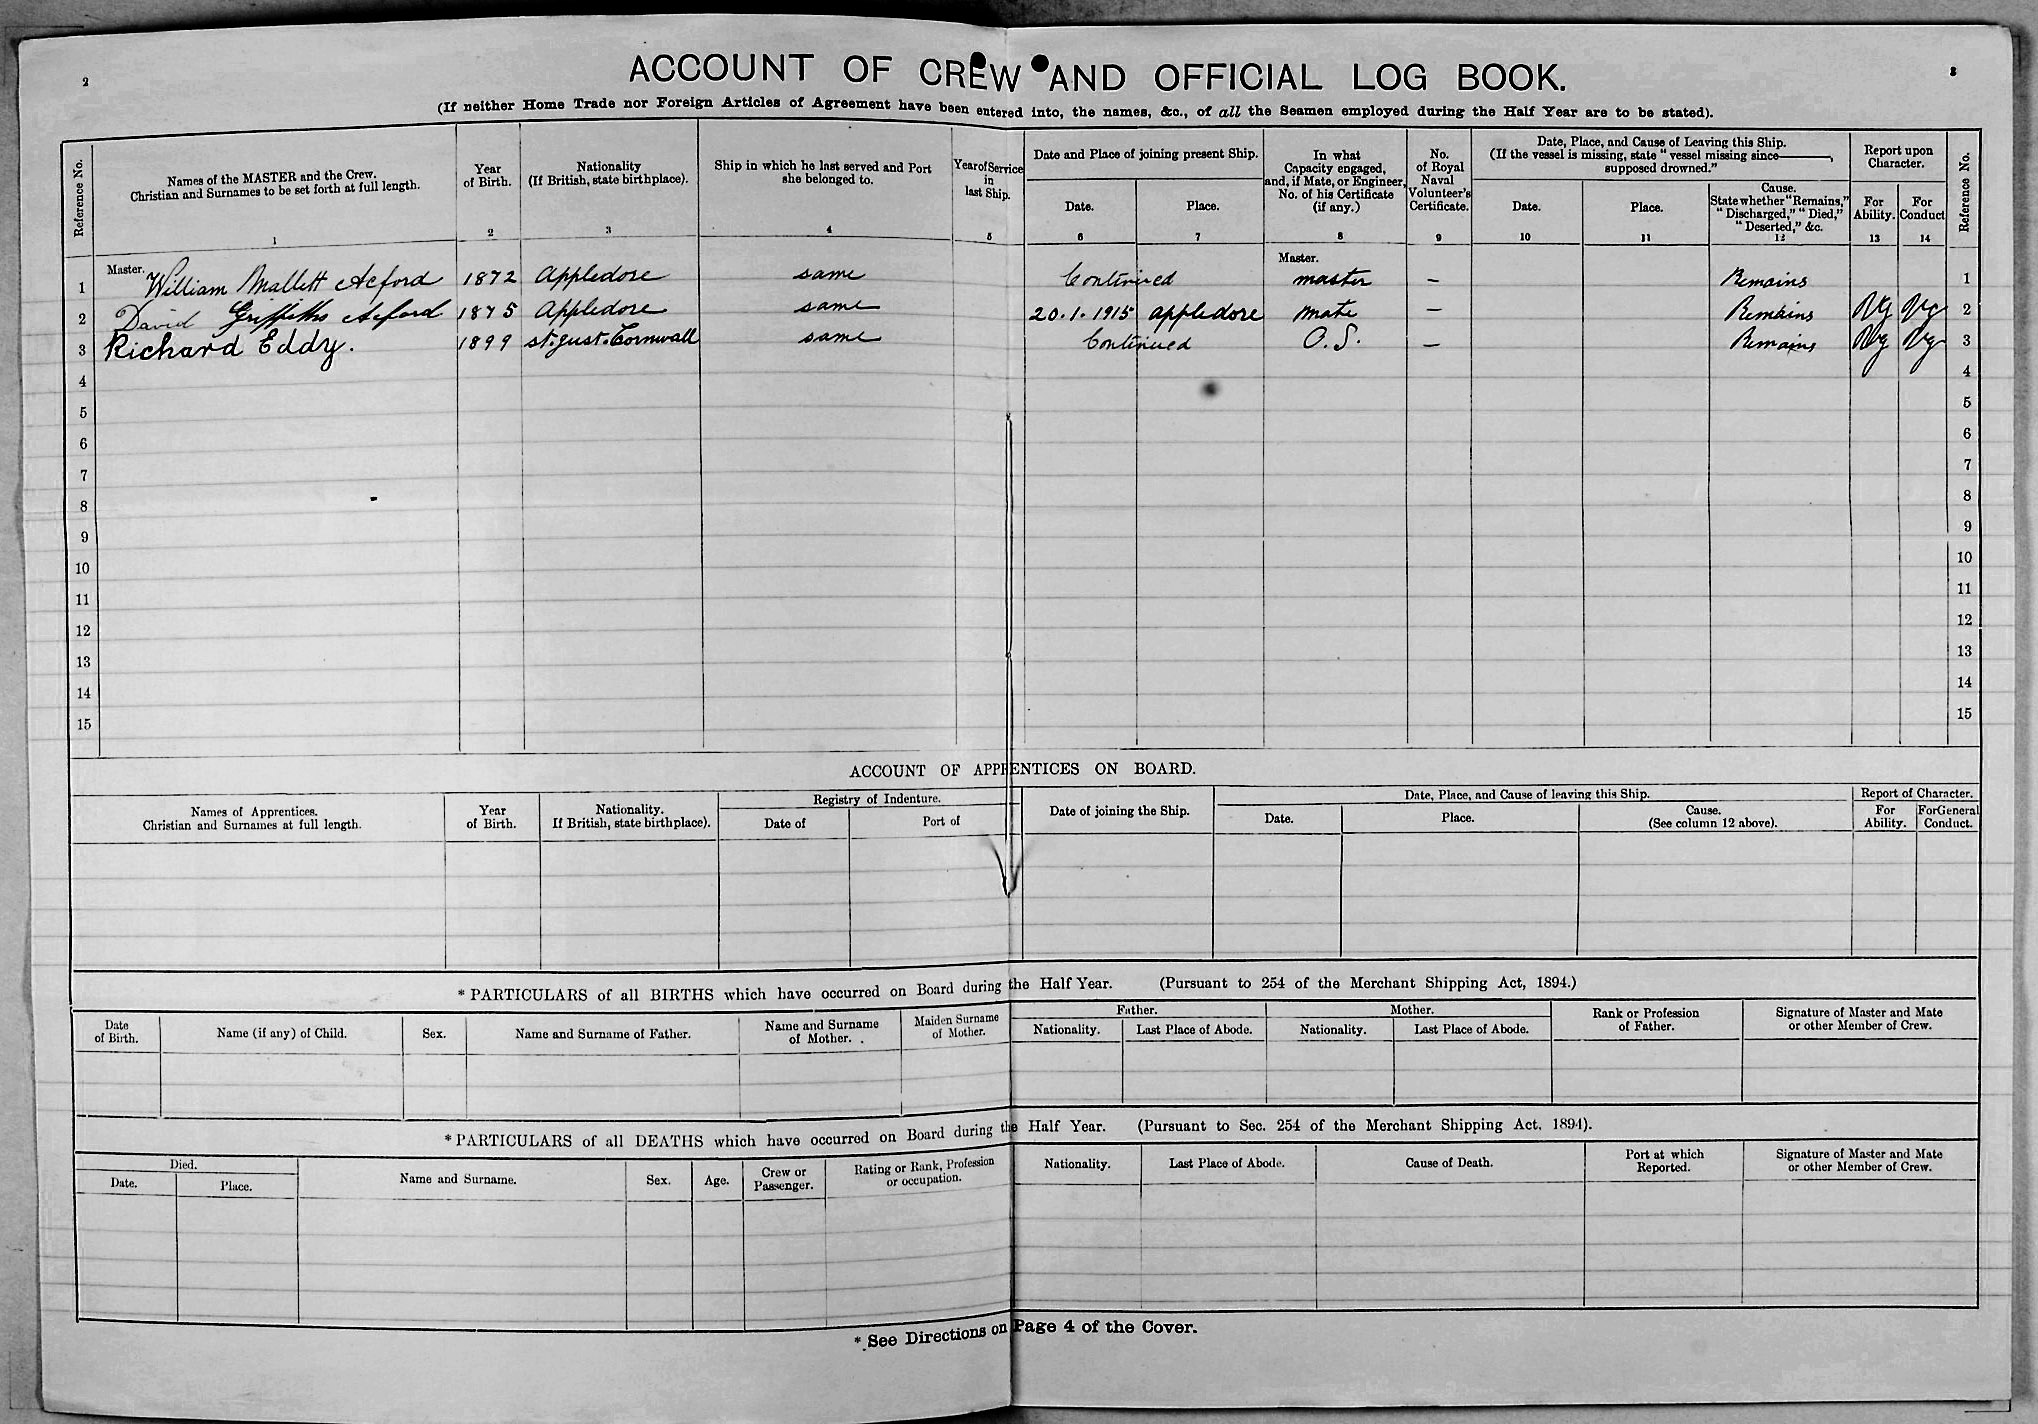 2
3
ACCOUNT OF CREW AND OFFICIAL LOG BOOK.
(If neither Home Trade nor Foreign Articles of Agreement have been entered into, the names, &c., of all the Seamen employed during the Half Year are to be stated).
Reference No.
Names of the MASTER and the Crew.
Christian and Surnames to be set forth at full length.
1
Year
of Birth.
2
Nationality
(If British, state birthplace).
3
Ship in which he last served and Port
she belonged to.
4
Year of Service
in
last Ship.
5
Date and Place of joining present Ship.
Date.
6
Place.
7
In what
Capacity engaged,
and, if Mate, or Engineer,
No. of his Certificate
(if any.)
8
No.
of Royal
Naval
Volunteer's
Certificate.
9
Date, Place, and Cause of Leaving this Ship.
(If the vessel is missing, state "vessel missing since———,
supposed drowned."
Date.
10
Place.
11
Cause.
State whether "Remains,"
"Discharged," "Died,"
"Deserted," &c.
12
Report upon
Character.
For
Ability.
13
For
Conduct
14
Reference No.
Master. Master.
1 William Mallett Acford 1872 Appledore same Continued master – Remains 1
2 David Griffiths Acford 1875 Appledore same 20.1.1915 appledore mate – Remains Vg Vg 2
3 Richard Eddy. 1899 st. Just. Cornwall same Continued O.S. – Remains Vg Vg 3
4 4
5 5
6 6
7 7
8 8
9 9
10 10
11 11
12 12
13 13
14 14
15 15
ACCOUNT OF APPRENTICES ON BOARD.
Names of Apprentices.
Christian and Surnames at full length.
Year
of Birth.
Nationality.
If British, state birthplace).
Registry of Indenture.
Date of
Port of
Date of joining the Ship.
Date, Place, and Cause of leaving this Ship.
Date.
Place.
Cause.
(See column 12 above).
Report of Character.
For
Ability.
For General
Conduct.
* PARTICULARS of all BIRTHS which have occurred on Board during the Half Year. (Pursuant to 254 of the Merchant Shipping Act, 1894.)
Date
of Birth.
Name (if any) of Child.
Sex.
Name and Surname of Father.
Name and Surname
of Mother.
Maiden Surname
of Mother.
Father.
Nationality.
Last Place of Abode.
Mother.
Nationality.
Last Place of Abode.
Rank or Profession
of Father.
Signature of Master and Mate
or other Member of Crew.
* PARTICULARS of all DEATHS which have occurred on Board during the Half Year. (Pursuant to Sec. 254 of the Merchant Shipping Act, 1894).
Died.
Date.
Place.
Name and Surname.
Sex.
Age.
Crew or
Passenger.
Rating or Rank, Profession
or occupation.
Nationality.
Last Place of Abode.
Cause of Death.
Port at which
Reported.
Signature of Master and Mate
or other Member of Crew.
* See Directions on Page 4 of the Cover.